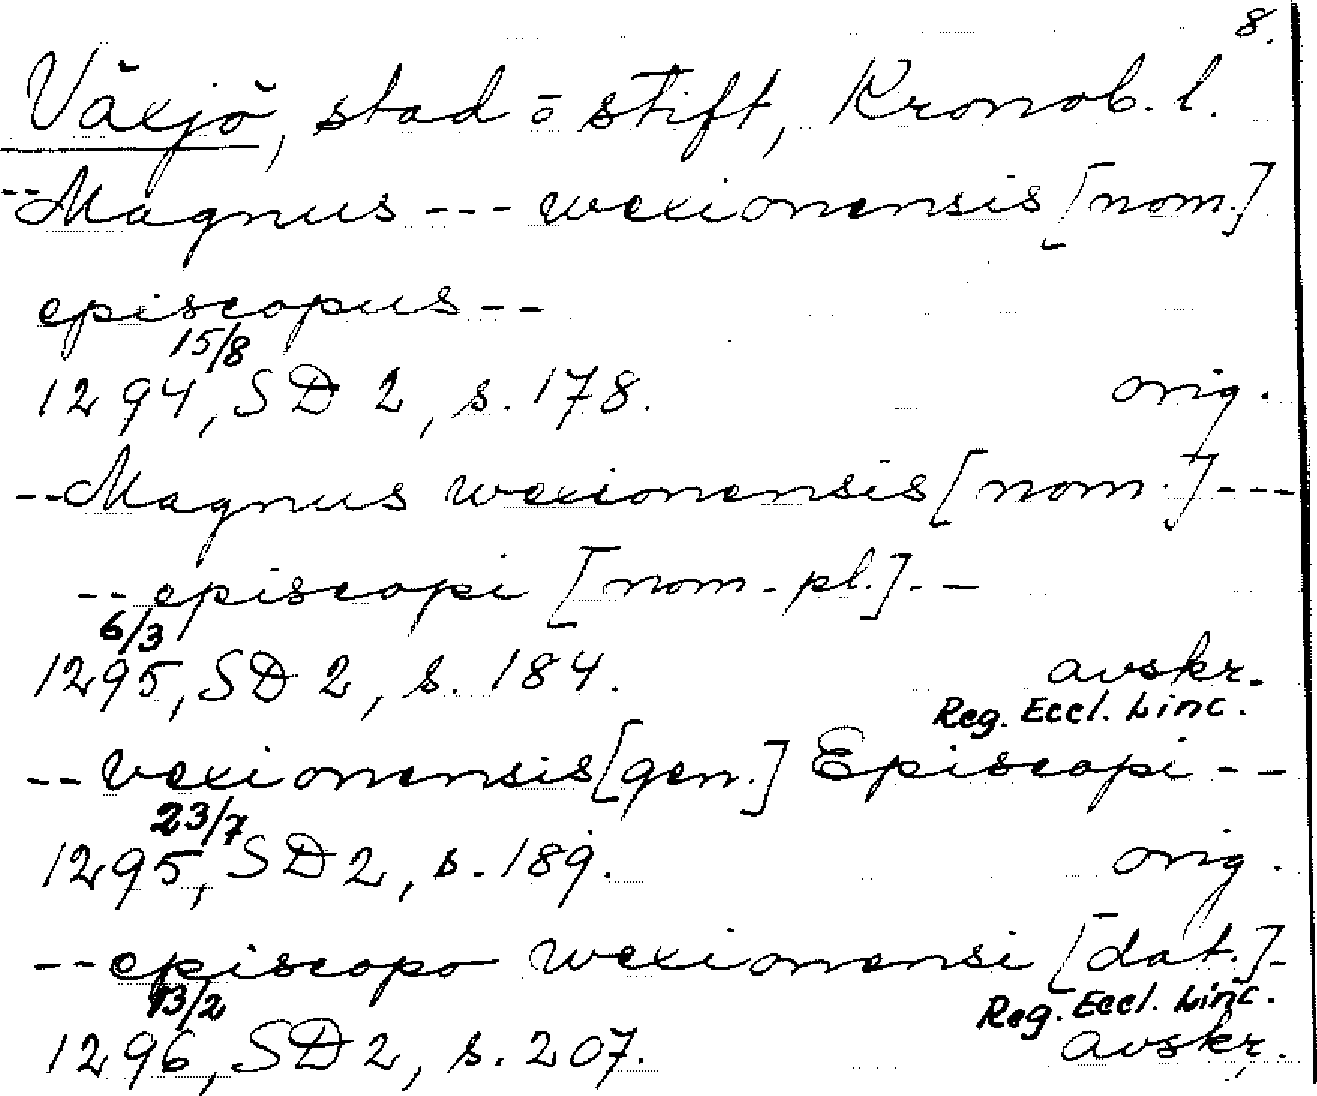 8.
Växjö, stad o stift, Kronob. l.
-- Magnus --- wexionensis [nom.]
episcopus --
15/8
1294, SD 2, s. 178. orig.
-- Magnus wexionensis [nom.] ---
-- episcopi [nom. pl.] --
6/3
1295, SD 2, s. 184. avskr.
Reg. Eccl. Linc.
-- vexionensis [gen.] Episcopi --
23/7
1295, SD 2, s. 189. orig.
-- episcopo wexionensi [dat.] -
13/2 Reg. Eccl. Linc.
1296, SD 2, s. 207. avskr.